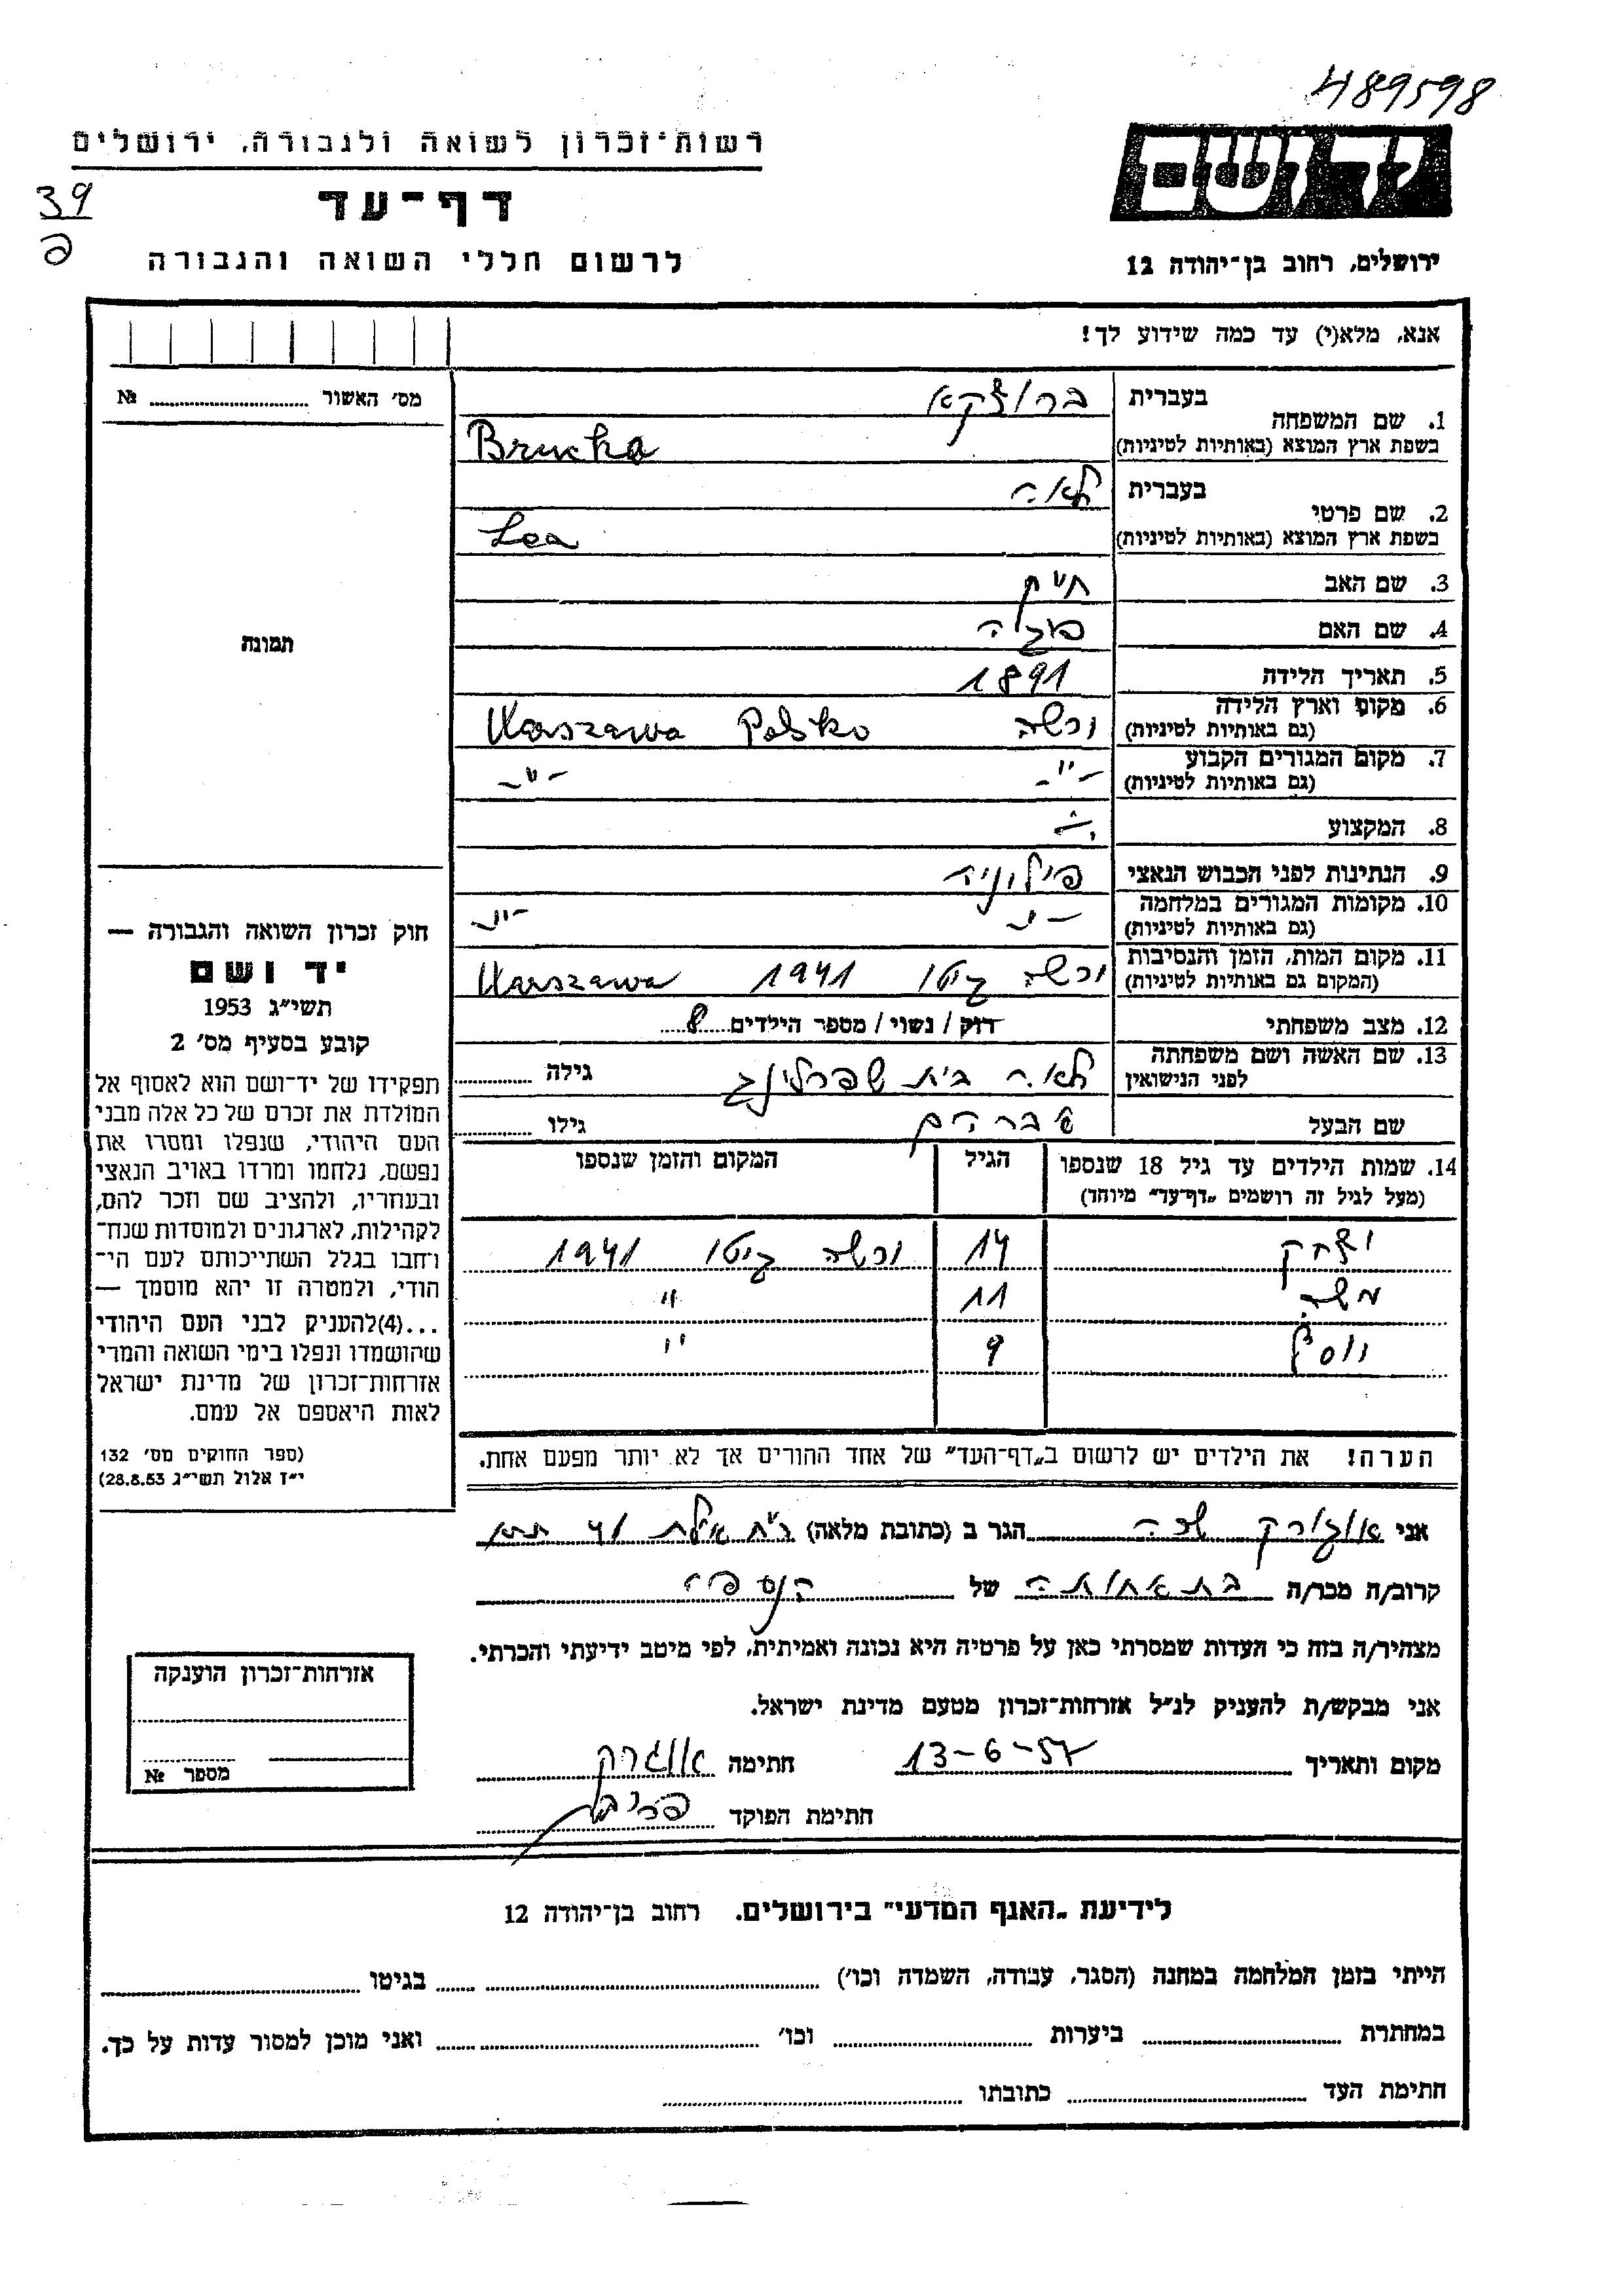 489598
רשות־זכרון לשואה ולגבורה, ירושלים
יד ושם
39
דף־עד
לרשום חללי השואה והגבורה
ירושלים, רחוב בן־יהודה 12
אנא, מלא(י) עד כמה שידוע לך!
מס׳ האשור № 
1. שם המשפחה
בעברית ברוצקא
בשפת ארץ המוצא (באותיות לטיניות) Brucka
2. שם פרטי
בעברית לאה
בשפת ארץ המוצא (באותיות לטיניות) Lea
3. שם האב
4. שם האם
5. תאריך הלידה 1891
6. מקום וארץ הלידה
(גם באותיות לטיניות) ורשה Warszawa Polsko
7. מקום המגורים הקבוע
(גם באותיות לטיניות) -״- -״-
8. המקצוע
9. הנתינות לפני הכבוש הנאצי
10. מקומות המגורים במלחמה
(גם באותיות לטיניות) -״- -״-
11. מקום המות, הזמן והנסיבות
(המקום גם באותיות לטיניות) ורשה גיטו 1941 Warszawa
12. מצב משפחתי רווק / נשוי / מספר הילדים 8
13. שם האשה ושם משפחתה
לפני הנישואין לאה בית שפרלינג גילה
שם הבעל אברהם גילו
14. שמות הילדים עד גיל 18 שנספו הגיל המקום והזמן שנספו
(מעל לגיל זה רושמים „דף־עד״ מיוחד)
יצחק 14 ורשה גיטו 1941
משה 11 ״
יוסף 9 ״
הערה! את הילדים יש לרשום ב„דף־העד״ של אחד ההורים אך לא יותר מפעם אחת.
תמונה
חוק זכרון השואה והגבורה —
יד ושם
תשי״ג 1953
קובע בסעיף מס׳ 2
תפקידו של יד־ושם הוא לאסוף אל
המולדת את זכרם של כל אלה מבני
העם היהודי, שנפלו ומסרו את
נפשם, נלחמו ומרדו באויב הנאצי
ובעוזריו, ולהציב שם וזכר להם,
לקהילות, לארגונים ולמוסדות שנח־
רחבו בגלל השתייכותם לעם הי־
הודי, ולמטרה זו יהא מוסמך —
...(4)להעניק לבני העם היהודי
שהושמדו ונפלו בימי השואה והמרי
אזרחות־זכרון של מדינת ישראל
לאות היאספם אל עמם.
(ספר החוקים מס׳ 132
י״ז אלול תשי״ג 28.8.53)
אני הגר ב (כתובת מלאה)
קרוב/ה מכר/ה בת אחותה של הנספה
מצהיר/ה בזה כי העדות שמסרתי כאן על פרטיה היא נכונה ואמיתית, לפי מיטב ידיעתי והכרתי.
אני מבקש/ת להעניק לנ״ל אזרחות־זכרון מטעם מדינת ישראל.
מקום ותאריך 13-6-57 חתימה
חתימת הפוקד
אזרחות־זכרון הוענקה
מספר №
לידיעת „האגף המדעי״ בירושלים. רחוב בן־יהודה 12
הייתי בזמן המלחמה במחנה (הסגר, עבודה, השמדה וכו׳) בגיטו
במחתרת ביערות וכו׳ ואני מוכן למסור עדות על כך.
חתימת העד כתובתו